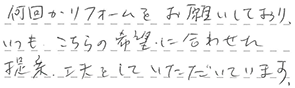 何回かリフォームをお願いしており、
いつも、こちらの希望に合わせた
提案、工夫をしていただいています。